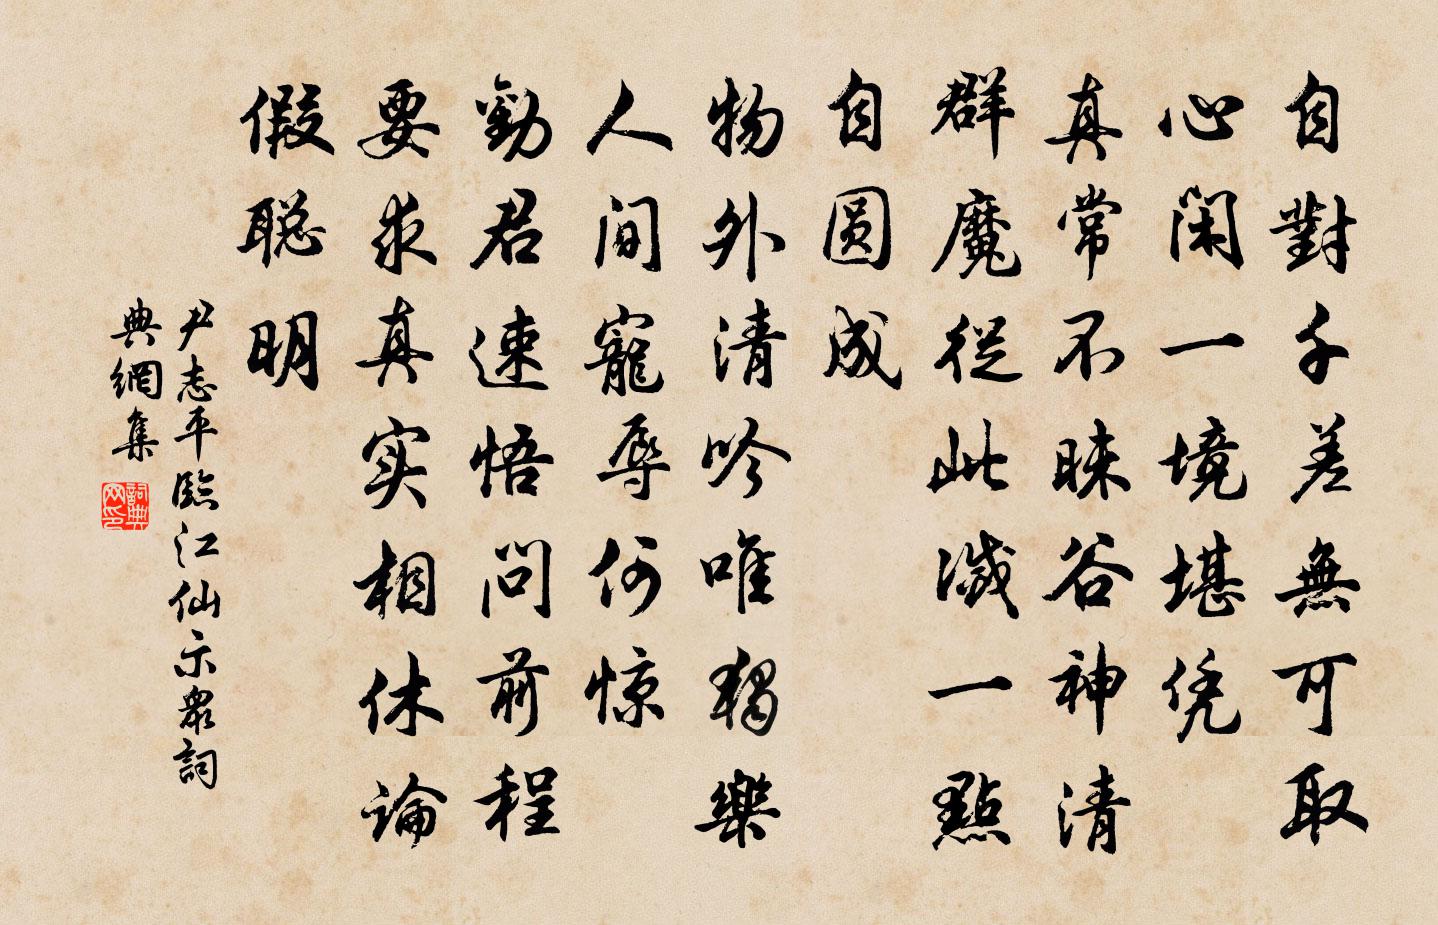 自對千差無可取
心闲一境堪凭
真常不昧谷神清
群魔從此滅一點
自圆成
物外清吟唯独樂
人间寵辱何惊
勸君速悟问前程
要求真实相休论
假聪明
尹志平臨江仙示衆詞
典網集
詞典
网印